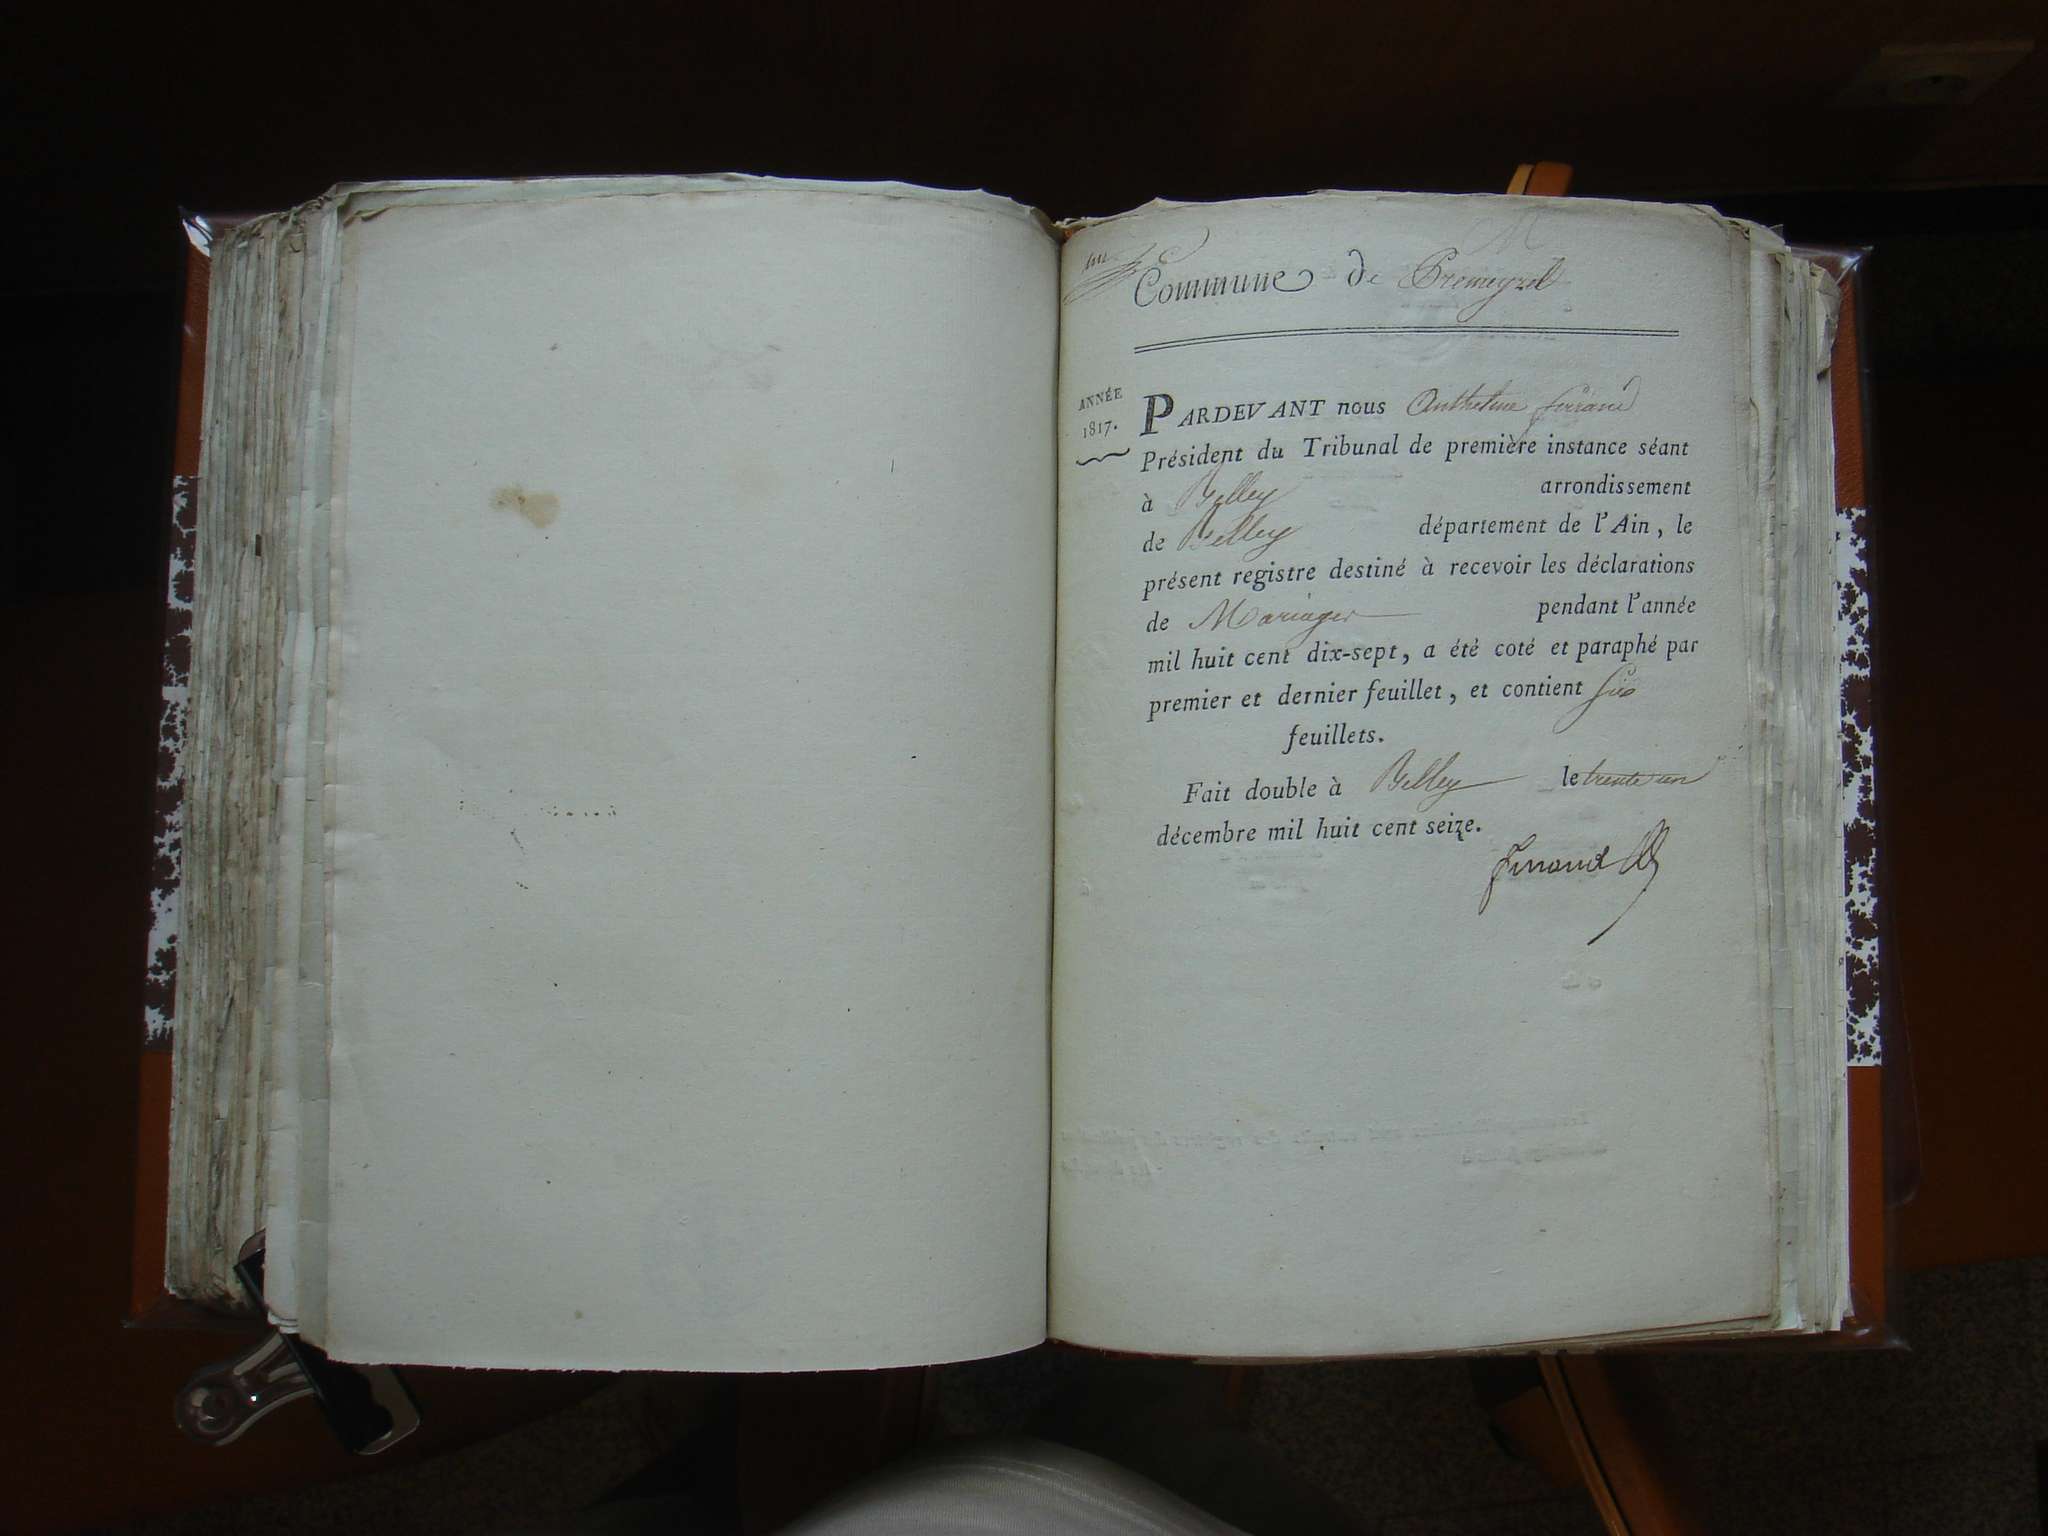 un
M
Commune de Premeyzel
ANNÉE
1817.
PARDEVANT nous Anthelme ferrand
Président du Tribunal de première instance séant
à Belley arrondissement
de Belley département de l'Ain, le
présent registre destiné à recevoir les déclarations
de Mariages pendant l'année
mil huit cent dix-sept, a été coté et paraphé par
premier et dernier feuillet, et contient Six
feuillets.
Fait double à Belley le trente un
décembre mil huit cent seize.
ferrand